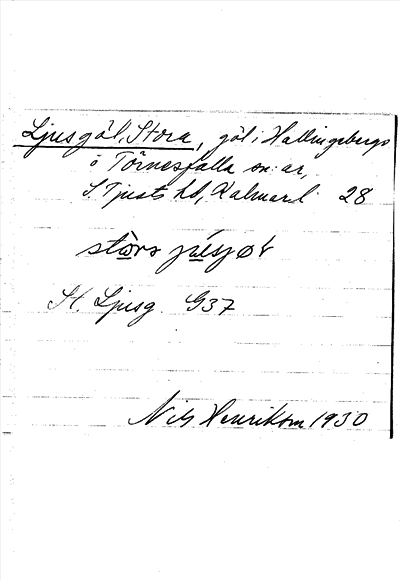 Ljusgöl, Stora, göl i Hallingebergs
o Törnesfalla sn:ar,
S. Tjusts hd, Kalmar l. 28
störə jʉ́sjøʟ
St. Ljusg. G37
Nils Henrikson 1930